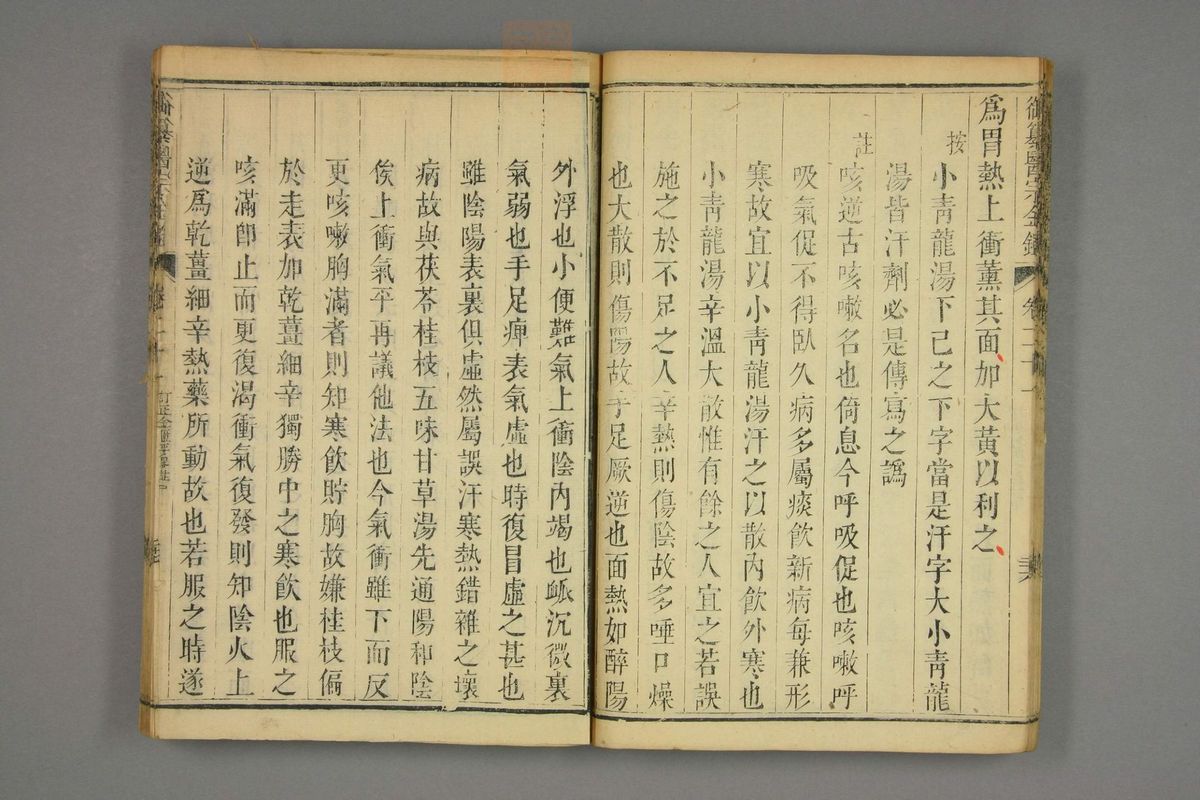 御纂醫宗金鑑 卷二十一
爲胃熱上衝薰其面加大黃以利之
按 小靑龍湯下己之下字當是汗字大小靑龍
湯皆汗劑必是傳寫之譌
註 咳逆古咳嗽名也倚息今呼吸促也咳嗽呼
吸氣促不得臥久病多屬痰飮新病每兼形
寒故宜以小靑龍湯汗之以散內飮外寒也
小靑龍湯辛溫大散惟有餘之人宜之若誤
施之於不足之人辛熱則傷陰故多唾口燥
也大散則傷陽故手足厥逆也面熱如醉陽
外浮也小便難氣上衝陰內竭也䘑沉微裏
氣弱也手足痺表氣虛也時復冒虛之甚也
雖陰陽表裏俱虛然屬誤汗寒熱錯雜之壞
病故與茯苓桂枝五味甘草湯先通陽和陰
俟上衝氣平再議他法也今氣衝雖下而反
更咳嗽胸滿者則知寒飮貯胸故嫌桂枝偏
於走表加乾薑細辛獨勝中之寒飮也服之
咳滿卽止而更復渴衝氣復發則知陰火上
逆爲乾薑細辛熱藥所動故也若服之時遂